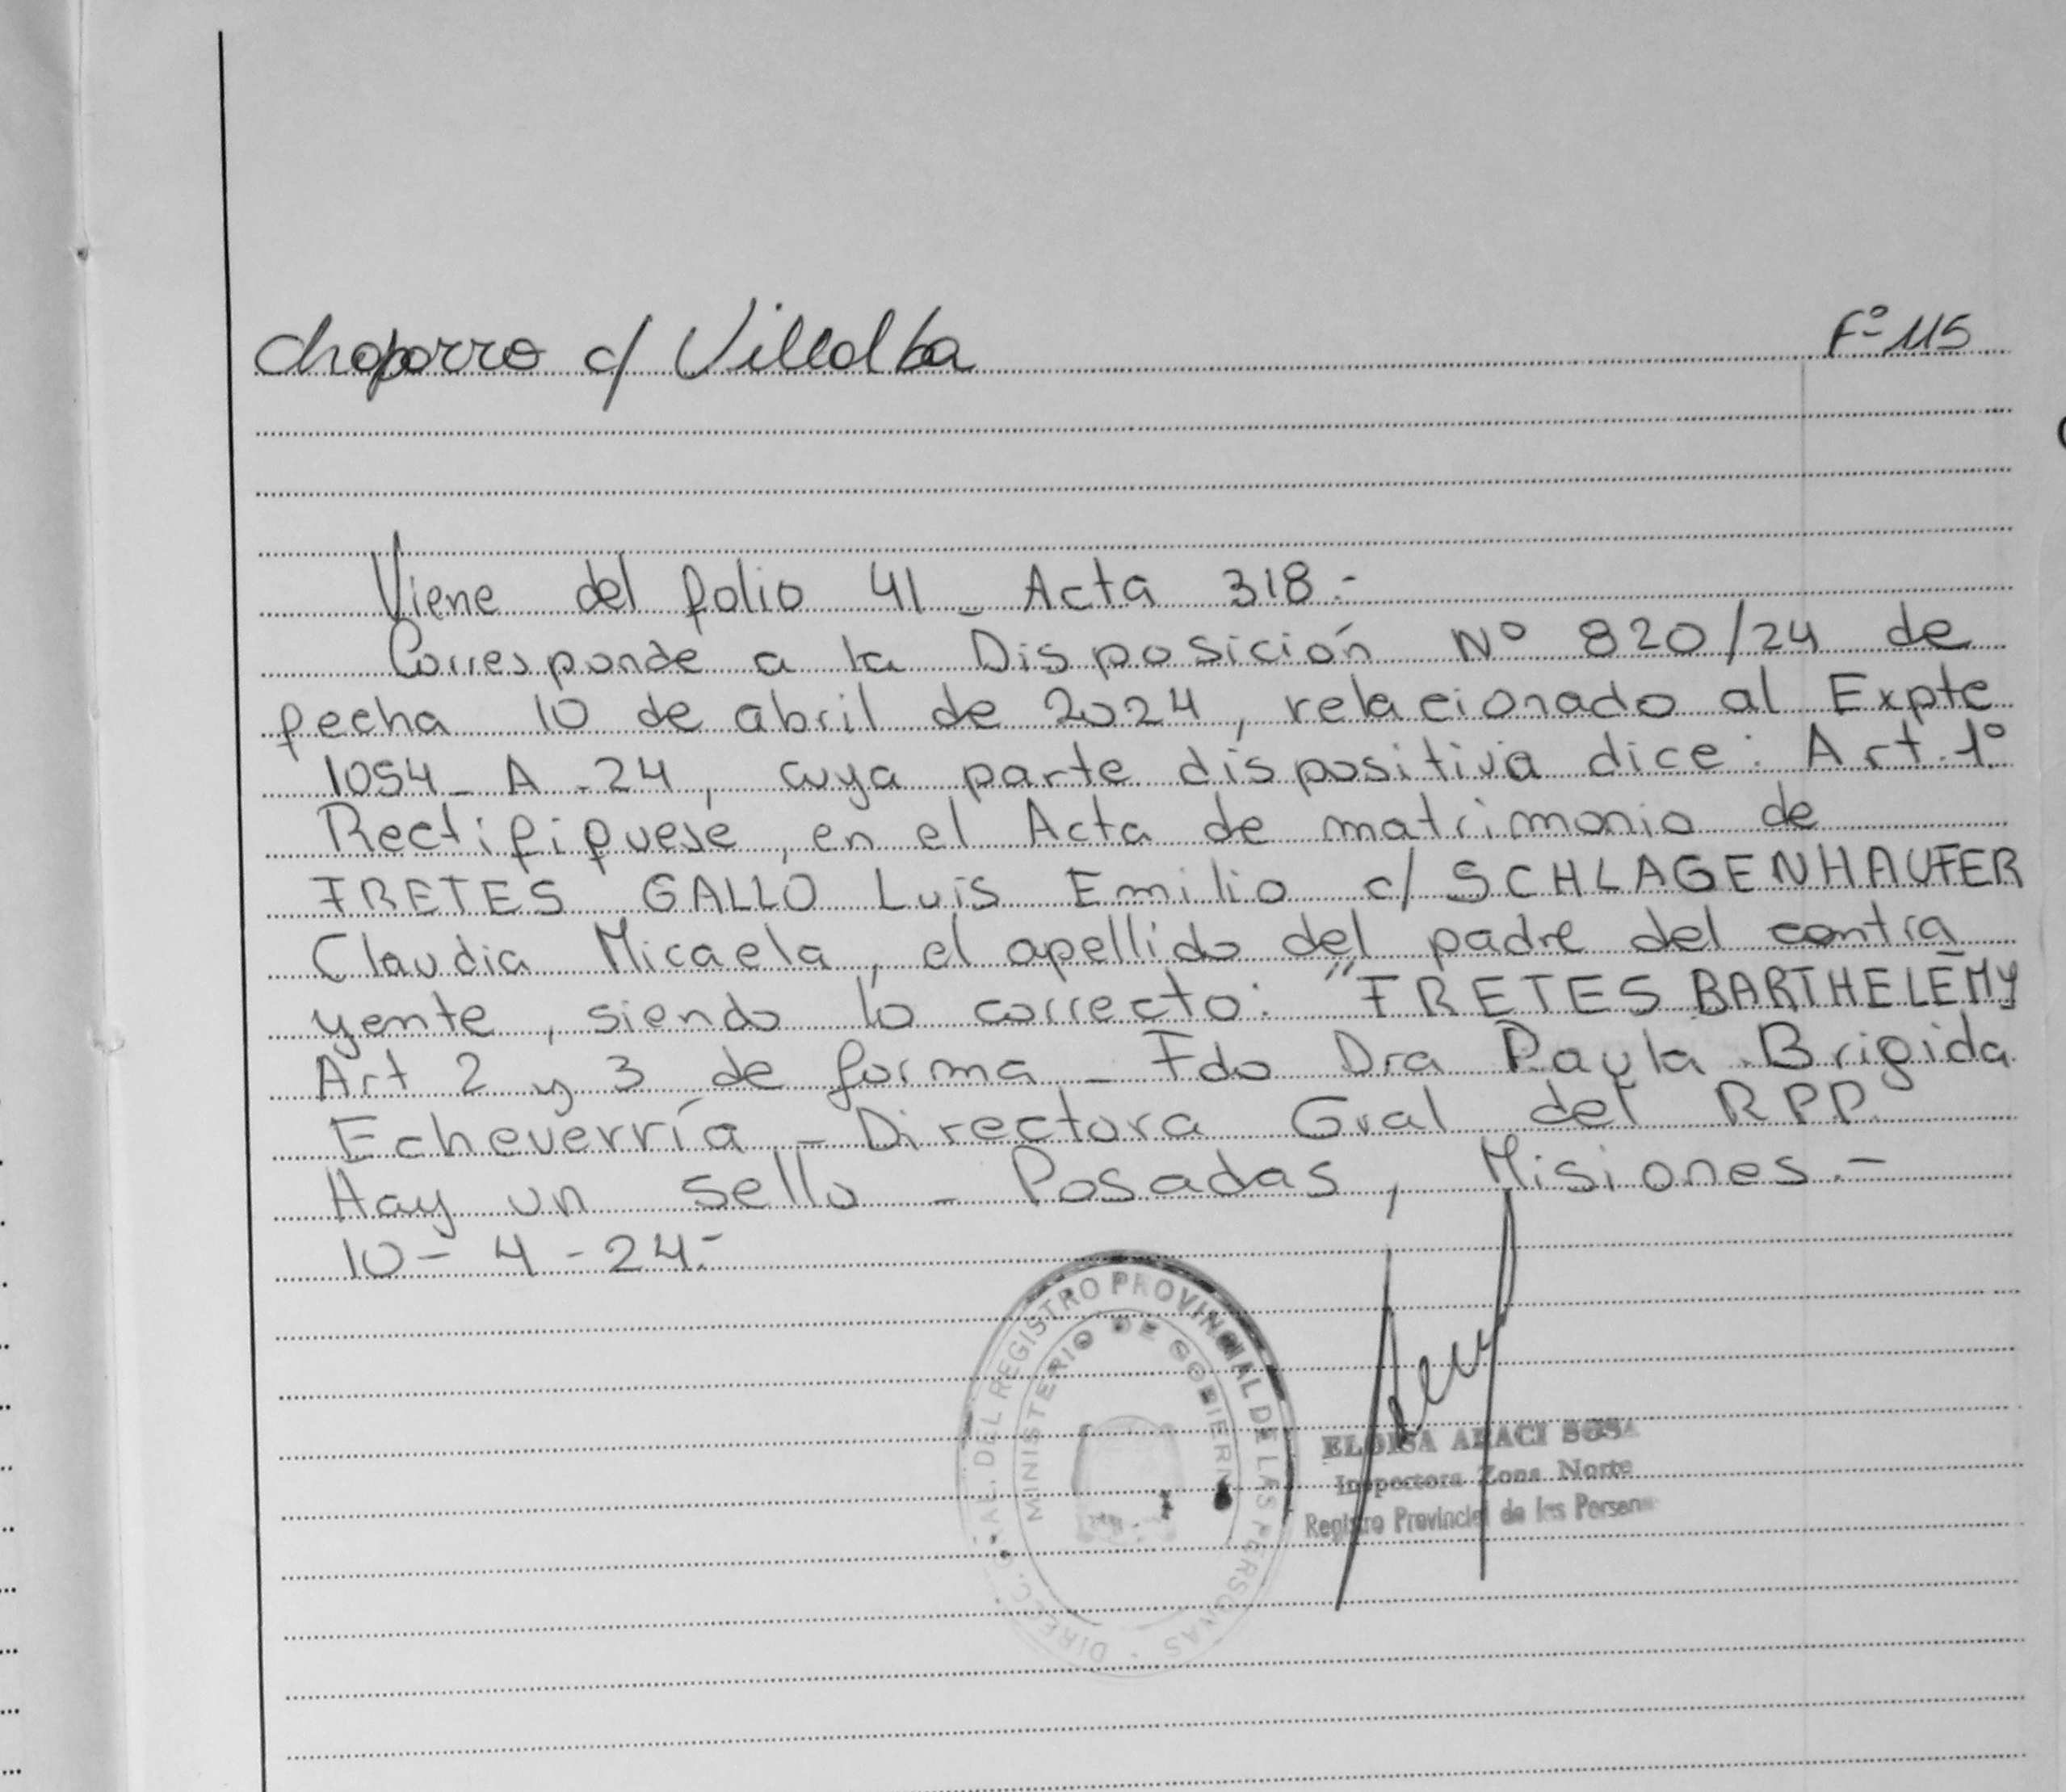 Chaparro c/ Villalba F° 115
Viene del folio 41 - Acta 318.-
Corresponde a la Disposición N° 820/24 de
fecha 10 de abril de 2024, relacionado al Expte
1054_ A - 24, cuya parte dispositiva dice: Art. 1°
Rectifíquese, en el Acta de matrimonio de
FRETES GALLO Luis Emilio c/ SCHLAGENHAUFER
Claudia Micaela, el apellido del padre del contra
yente, siendo lo correcto: "FRETES BARTHELÉMY
Art 2 y 3 de forma - Fdo Dra Paula Brigida
Echeverría - Directora Gral del RPP
Hay un sello - Posadas, Misiones.-
10 - 4 - 24.-
DIRECC. GRAL. DEL REGISTRO PROVINCIAL DE LAS PERSONAS
MINISTERIO DE GOBIERNO
ELOISA ARACI SOSA
Inspectora Zona Norte
Registro Provincial de las Persona